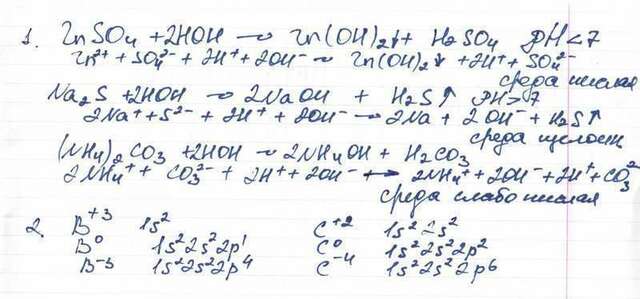 1. ZnSO4 + 2HOH → Zn(OH)2↓ + H2SO4 pH<7
Zn2+ + SO4 2- + 2H+ + 2OH- → Zn(OH)2↓ + 2H+ + SO4 2-
среда кислая
Na2S + 2HOH → 2NaOH + H2S↑ pH>7
2Na+ + S2- + 2H+ + 2OH- → 2Na + 2OH- + H2S↑
среда щелочн
(NH4)2CO3 + 2HOH → 2NH4OH + H2CO3
2NH4+ + CO3 2- + 2H+ + 2OH- → 2NH4+ + 2OH- + 2H+ + CO3 2-
среда слабо кислая
2. B+3 1s2 C+2 1s2 2s2
B0 1s2 2s2 2p1 C0 1s2 2s2 2p2
B-3 1s2 2s2 2p4 C-4 1s2 2s2 2p6